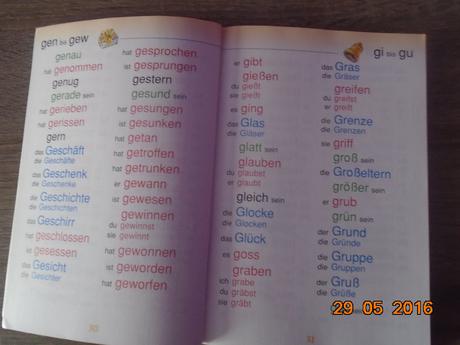 gen bis gew
genau
hat genommen
genug
gerade sein
hat gerieben
hat gerissen
gern
das Geschäft
die Geschäfte
das Geschenk
die Geschenke
die Geschichte
die Geschichten
das Geschirr
hat geschlossen
ist gesessen
das Gesicht
die Gesichter
hat gesprochen
ist gesprungen
gestern
gesund sein
hat gesungen
ist gesunken
hat getan
hat getroffen
hat getrunken
er gewann
ist gewesen
gewinnen
du gewinnst
sie gewinnt
hat gewonnen
ist geworden
hat geworfen
30
gi bis gu
er gibt
gießen
du gießt
sie gießt
es ging
das Glas
die Gläser
glatt sein
glauben
du glaubst
er glaubt
gleich sein
die Glocke
die Glocken
das Glück
es goss
graben
ich grabe
du gräbst
sie gräbt
das Gras
die Gräser
greifen
du greifst
er greift
die Grenze
die Grenzen
sie griff
groß sein
die Großeltern
größer sein
er grub
grün sein
der Grund
die Gründe
die Gruppe
die Gruppen
der Gruß
die Grüße
31
29 05 2016